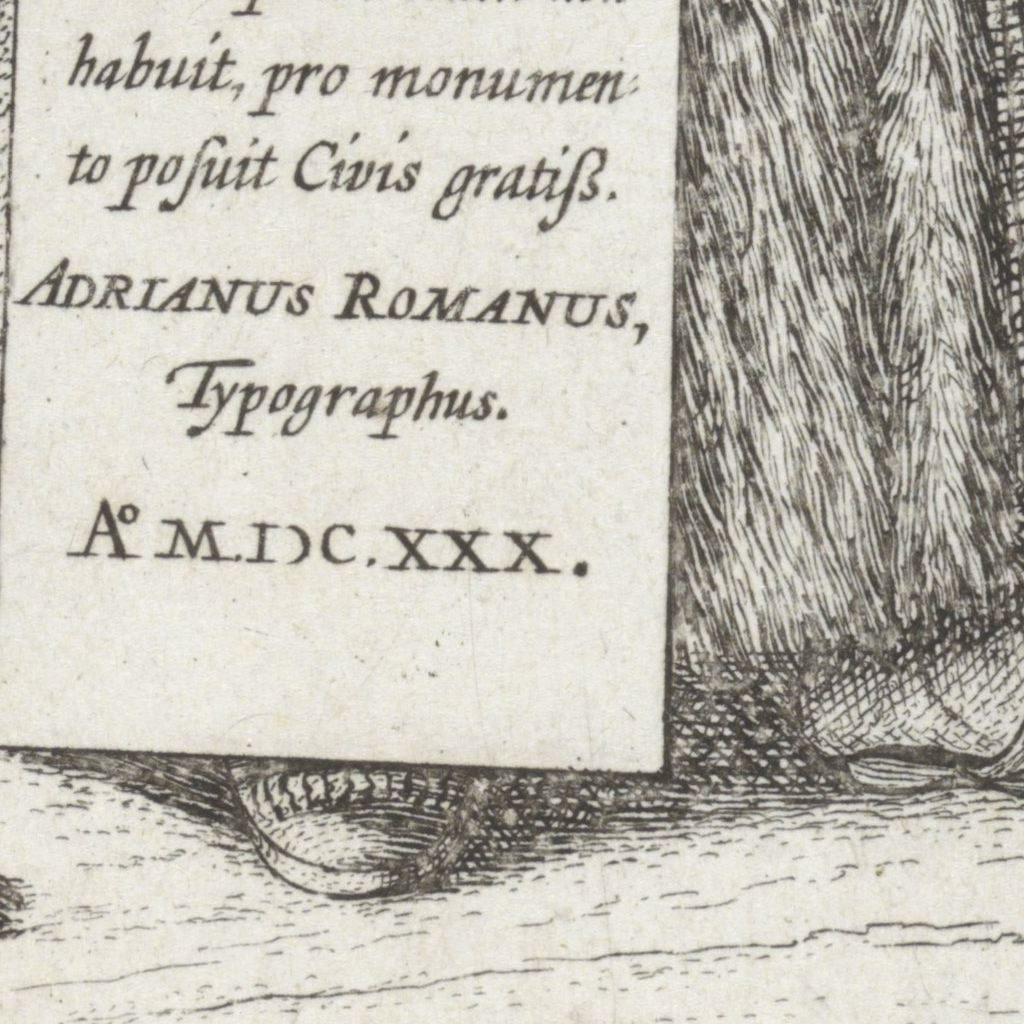 habuit, pro monumen-
to posuit Civis gratiss.
ADRIANUS ROMANUS,
Typographus.
Aº M.DC.XXX.